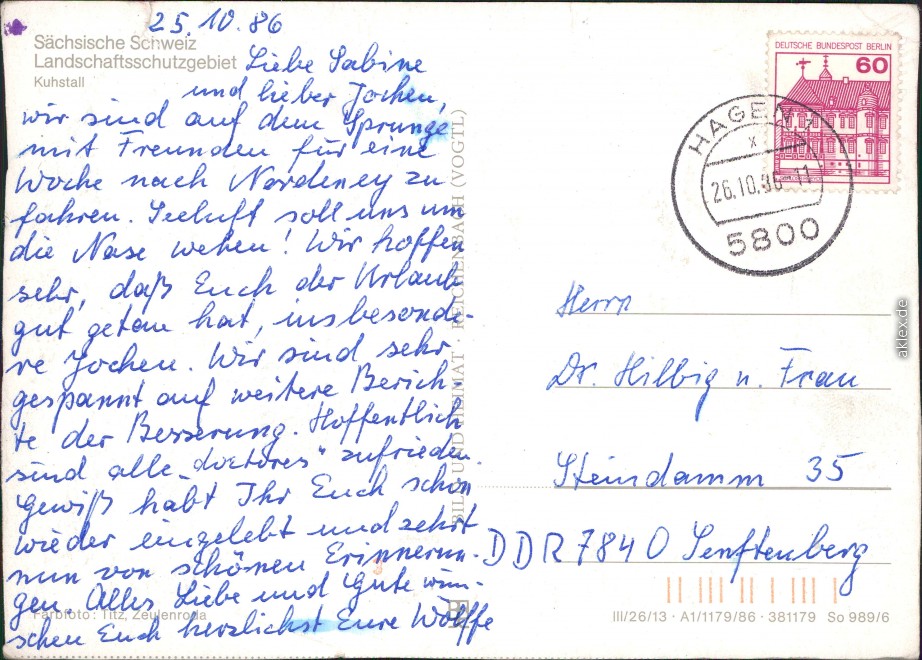 25.10.86
Sächsische Schweiz
Landschaftsschutzgebiet
Kuhstall
Liebe Sabine
und lieber Jochen,
wir sind auf dem Sprunge
mit Freunden für eine
Woche nach Norderney zu
fahren. Seeluft soll uns um
die Nase wehen! Wir hoffen
sehr, daß Euch der Urlaub
gut getan hat, insbesonde-
re Jochen. Wir sind sehr
gespannt auf weitere Berich-
te der Besserung. Hoffentlich
sind alle „doctores" zufrieden.
Gewiß habt Ihr Euch schon
wieder eingelebt und zehrt
nun von schönen Erinnerun-
gen. Alles Liebe und Gute wün-
schen Euch herzlichst Eure Wölffe
Farbfoto: Titz, Zeulenroda
BILD UND HEIMAT · REICHENBACH (VOGTL)
DEUTSCHE BUNDESPOST BERLIN
60
HAGEN 1
x
26.10.86-11
5800
Herrn
Dr. Hilbig u. Frau
Steindamm 35
DDR 7840 Senftenberg
III/26/13 · A1/1179/86 · 381179 So 989/6
aklex.de